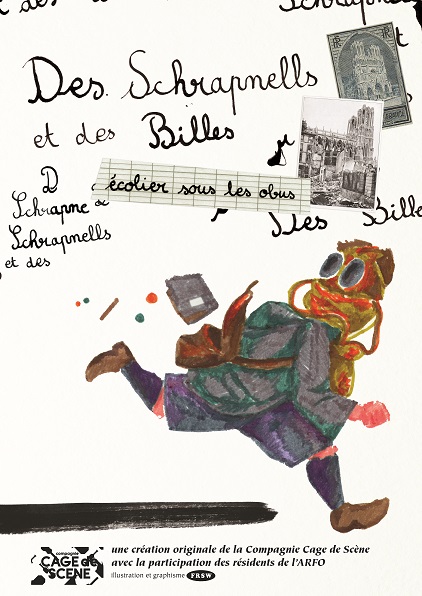 des
Schrapnells
Des Schrapnells
et des Billes
écolier sous les obus
D
Schrapne
Schrapnells
et des
Des Bille
compagnie
CAGE de
SCÈNE
une création originale de la Compagnie Cage de Scène
avec la participation des résidents de l'ARFO
illustration et graphisme FRSW